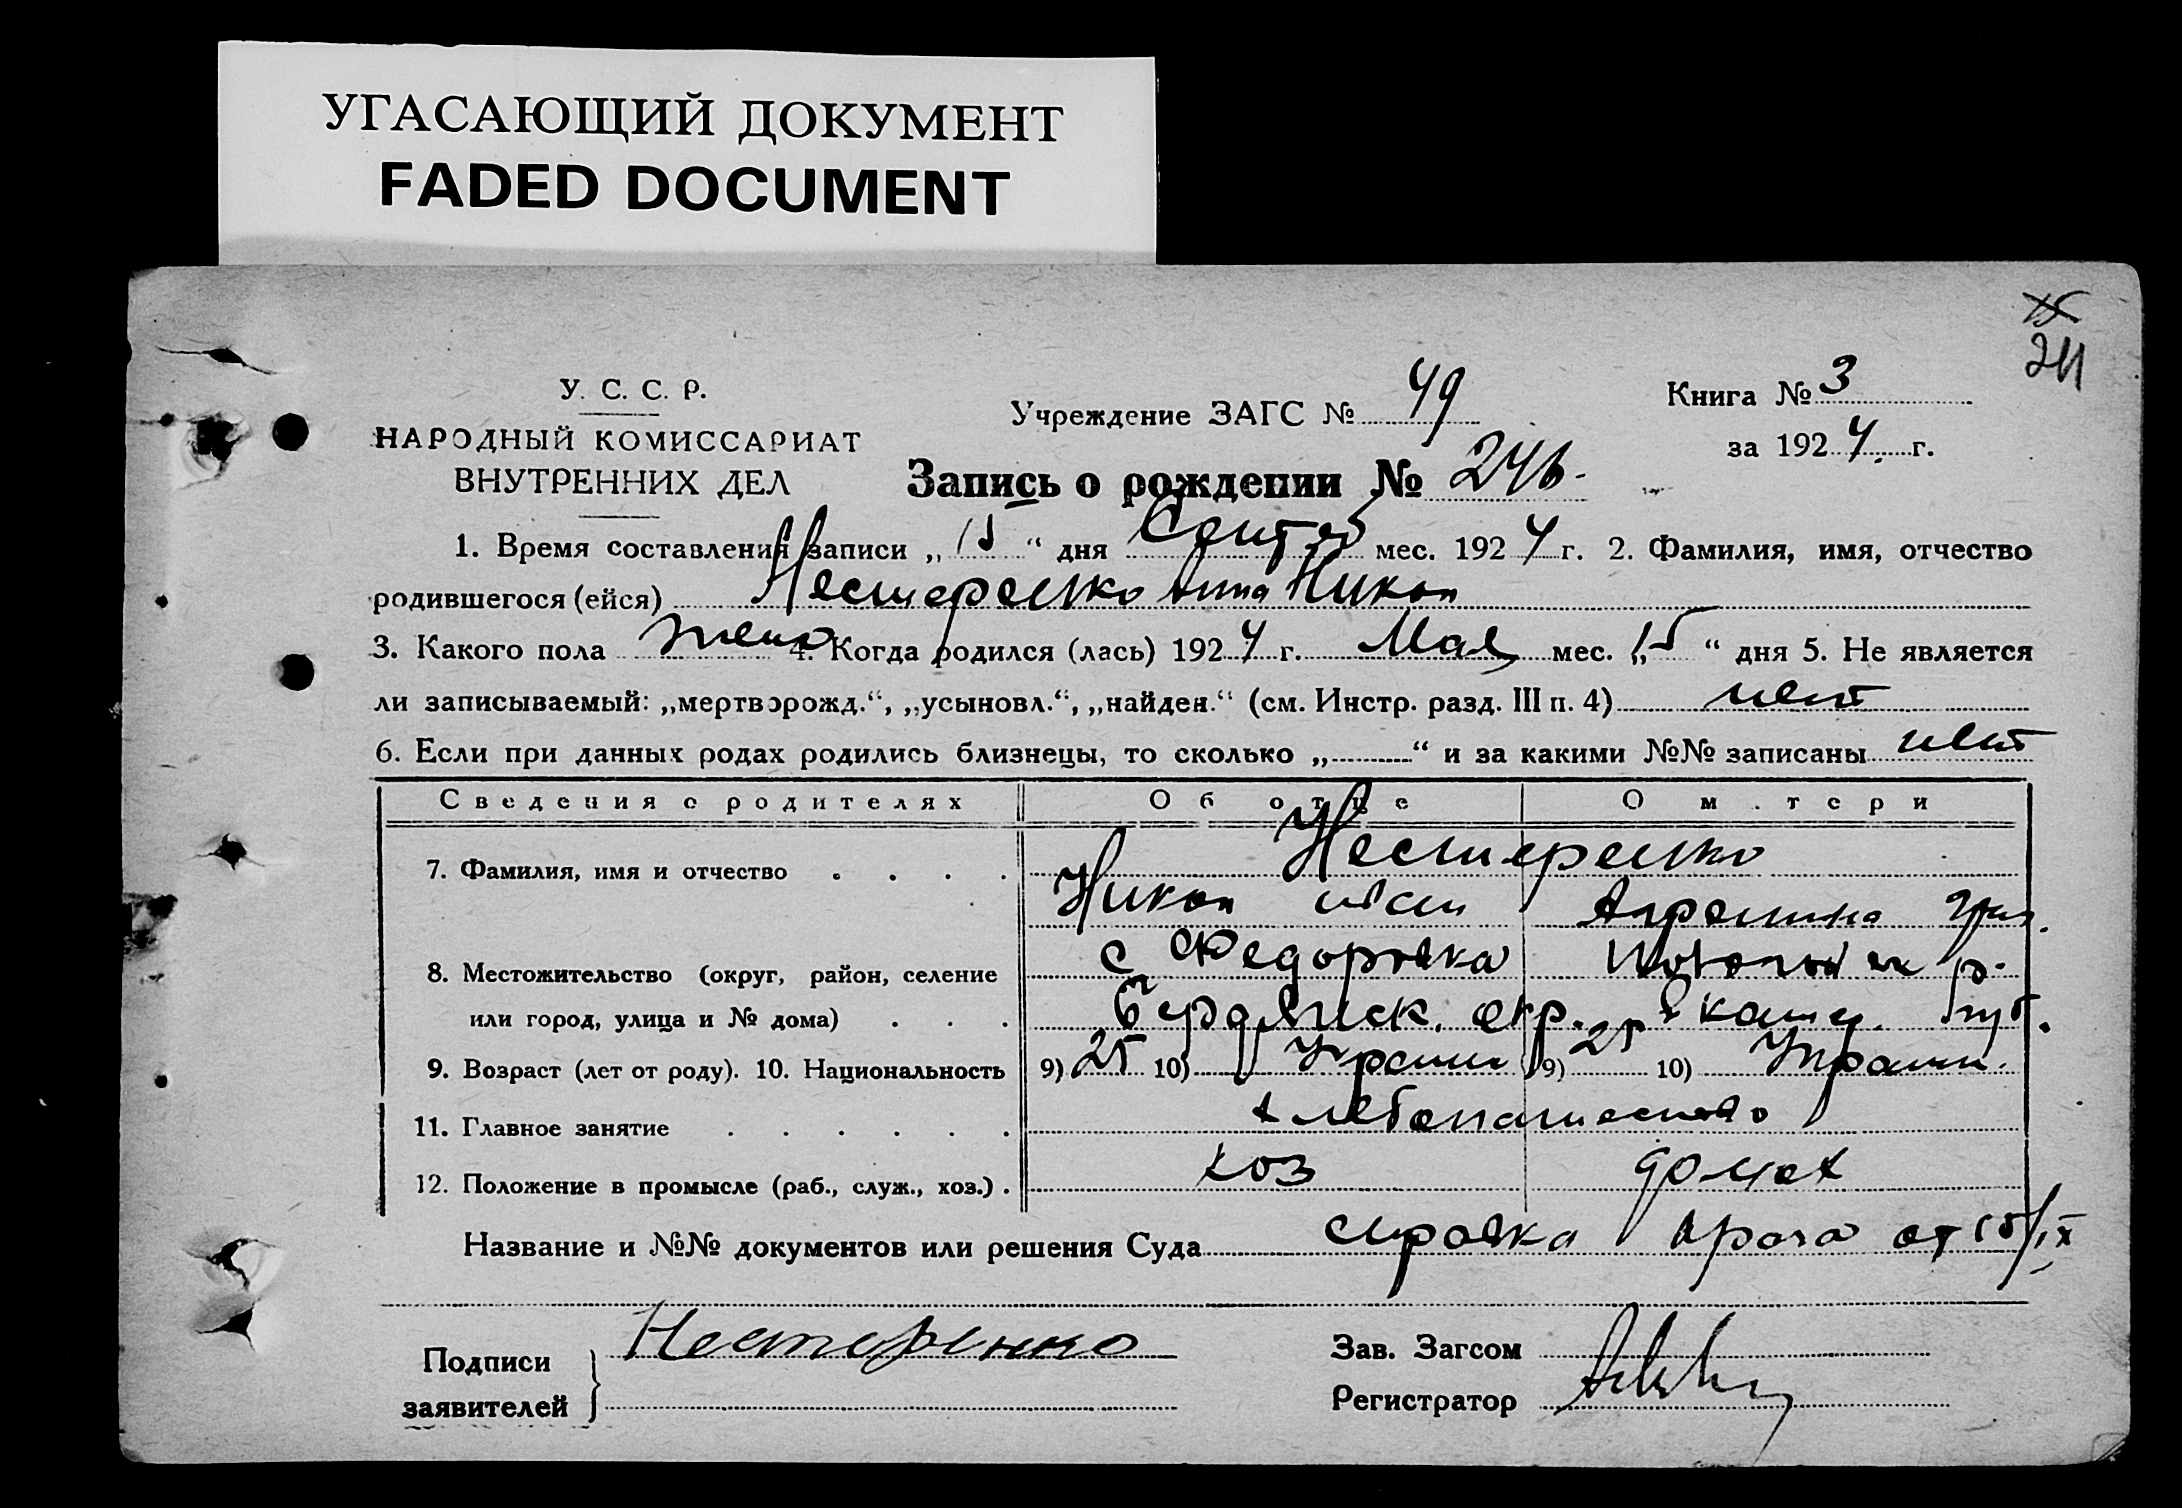 УГАСАЮЩИЙ ДОКУМЕНТ
FADED DOCUMENT
15
241
У. С. С. Р.
НАРОДНЫЙ КОМИССАРИАТ
ВНУТРЕННИХ ДЕЛ
Учреждение ЗАГС № 49
Книга № 3
за 1924 г.
Запись о рождении № 246.
1. Время составления записи „15“ дня Сентяб мес. 1924 г. 2. Фамилия, имя, отчество
родившегося (ейся) Нестеренко Анна Никон
3. Какого пола женс 4. Когда родился (лась) 1924 г. Мая мес. „15“ дня 5. Не является
ли записываемый: „мертворожд.“, „усыновл.“, „найден.“ (см. Инстр. разд. III п. 4) нет
6. Если при данных родах родились близнецы, то сколько „ “ и за какими №№ записаны нет
Сведения о родителях Об отце О матери
7. Фамилия, имя и отчество Нестеренко
Никон Иван
8. Местожительство (округ, район, селение с Федоровка р.
или город, улица и № дома) Бердянск. окр. Екатер. губ.
9. Возраст (лет от роду). 10. Национальность 9) 25 10) Украин 9) 25 10) Украин.
11. Главное занятие хлебопашество
12. Положение в промысле (раб., служ., хоз.) хоз домох
Название и №№ документов или решения Суда справка врача от 15/IX
Подписи
заявителей
Нестеренко
Зав. Загсом
Регистратор